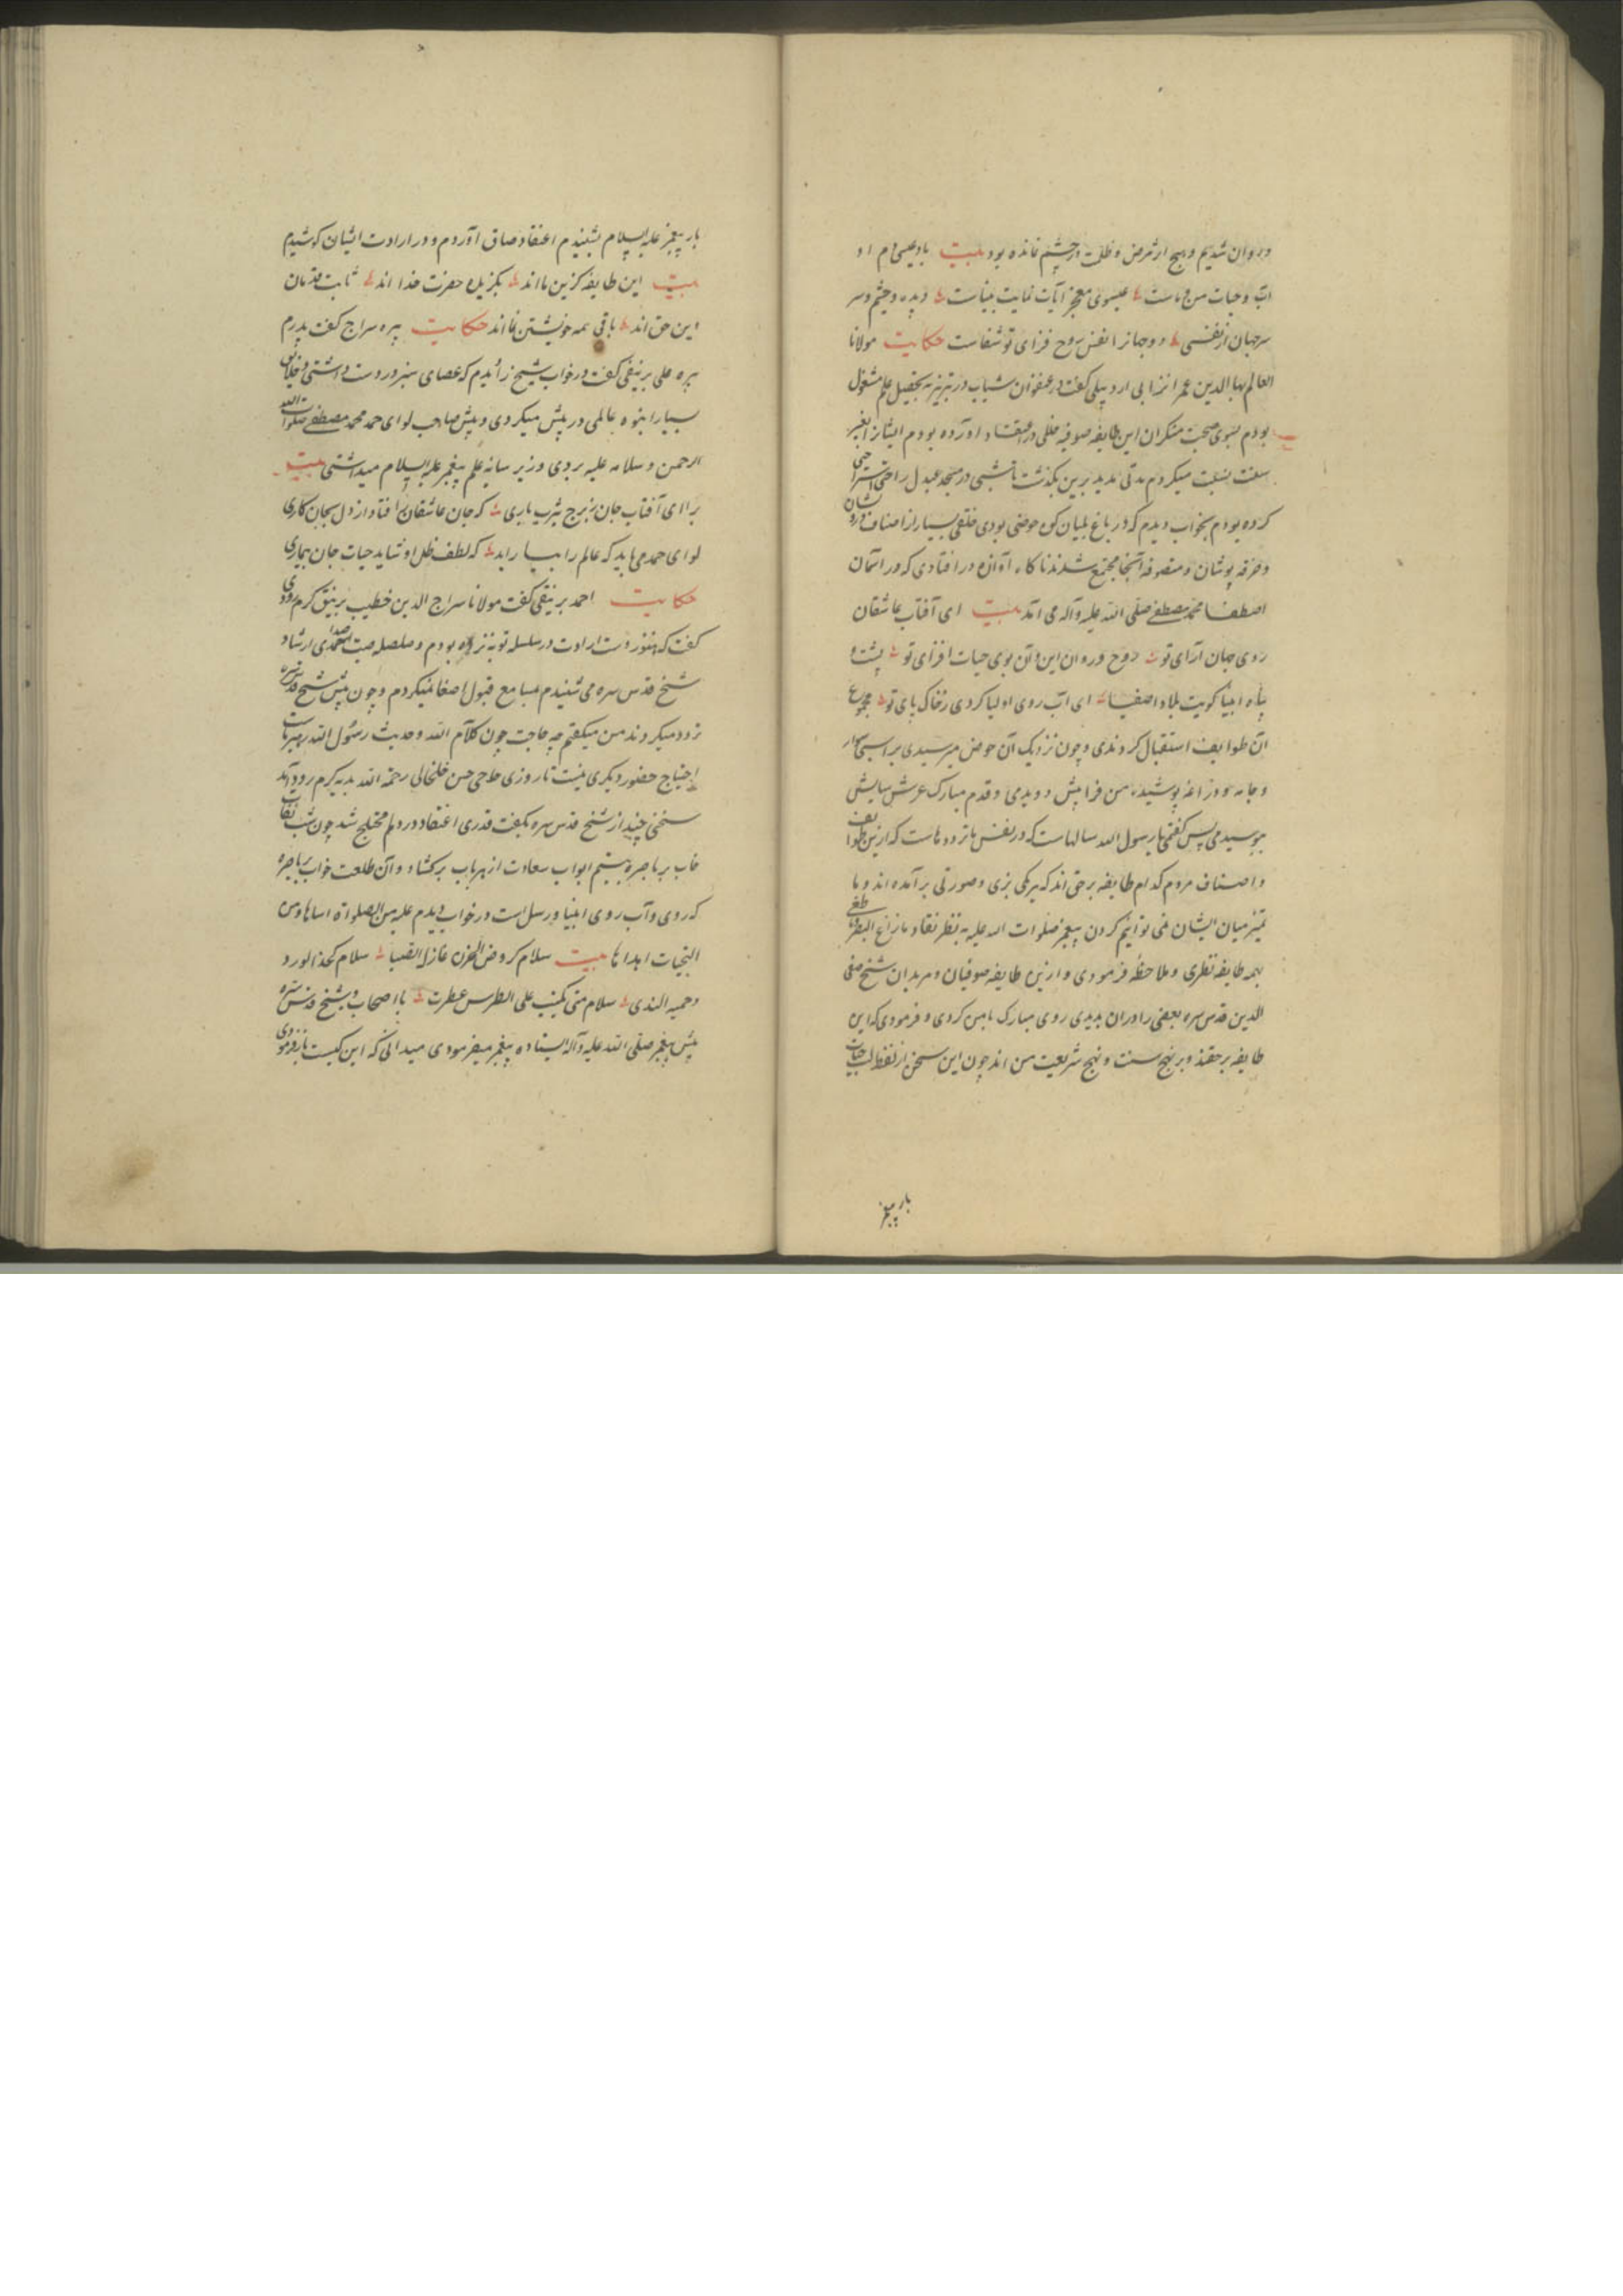 و روان شدیم و هیچ اثر مرض و ظلمت در چشم نمانده بود بیت باد عیسی دم او
آب و حیات من و ماست عیسوی معجز آیات نمایت بیناست دیده و چشم و سر
سرجهان از نفسی دو جهانرا نفس روح فزای تو شفاست حکایت مولانا
العالم بهاالدین عمر انزابی اردبیلی گفت در عنفوان شباب در تبریز به تحصیل علم مشغول
بودم بسوی صحبت منکران این طایفه صوفیه خللی در اعتقاد آورده بودم ایشانرا بغیر
سمت نسبت میکردم مدتی مدید برین بگذشت تا شبی در مسجد عبدل راحتی استراحتی
کرده بودم بخواب دیدم که در باغ بلیان کوه حوضی بودی خلقی بسیار از اصناف درویشان
و خرقه پوشان و متصوفه آنجا مجتمع شدند ناگاه آوازه در افتادی که در آسمان
اصطفا محمد مصطفی صلی الله علیه و آله می آید بیت ای آفتاب عاشقان
روی جهان آرای تو روح و روان این و آن بوی حیات افزای تو پشت و
پناه انبیا کویت ملاد اصفیا ای آب روی اولیا کردی ز خاک پای تو مجموع
آن طوایف استقبال کردندی و چون نزدیک آن حوض میرسیدی بر اسبی سوار
و جامه پوشیده من فرا پیش دویدمی و قدم مبارک عرش سایش
ببوسیدمی پس گفتمی یا رسول الله سالهاست که در نفس ما ترددهاست که ازین طوایف
و اصناف مردم کدام طایفه بر حق اند که هر یکی بزی و صورتی بر آمده اند و ما
تمیز میان ایشان نمی توانیم کردن پیغمبر صلوات الله علیه به نظر نقاد ما زاغ البصر و ما طغی
بهمه طایفه نظری و ملاحظه فرمودی و ازین طایفه صوفیان و مریدان شیخ صفی
الدین قدس سره بعضی را در آن بدیدی روی مبارک بامن کردی و فرمودی که این
طایفه بر حقند و بر نهج سنت و نهج شریعت من اند چون این سخن از لفظ
بار پیغمبر
بار پیغمبر علیه السلام بشنیدم اعتقاد صاق آوردم و در ارادت ایشان کوشیدم
بیت این طایفه گزین ما اند بگزیده حضرت خدا اند ثابت قدمان
این حق اند باقی همه خویشتن نما اند حکایت پیره سراج گفت پدرم
پیره علی برنیقی گفت در خواب شیخ را دیدم که عصای سبز در دست داشتی و خلایق
بسیار انبوه عالمی در پیش میکردی و پیش صاحب لوای حمد محمد مصطفی صلوات الله
الرحمن و سلامه علیه بردی و زیر سایه علم پیغمبر علیه السلام میداشتی بیت
برا ای آفتاب جان ز برج یثرب باری که جان عاشقان را افتاد از دل بجان کاری
لوای حمد می باید که عالم را بیاراید که لطف ظل او شاید حیات جان بیماری
حکایت احمد برنیقی گفت مولانا سراج الدین خطیب برنیق کرم رودی
گفت که هنوز دست ارادت در سلسله توبه نزده بودم و صلصله صیت ارشاد
شیخ قدس سره می شنیدم بمسامع قبول اصغا نمیکردم و چون پیش شیخ قدس سره
تردد میکردند من میگفتم چه حاجت چون کلام الله و حدیث رسول الله رهبر ماست
احتیاج حضور دیگری نیست تا روزی حاجی حسن خلخالی رحمه الله بدیه کرم رود آمد
سخنی چند از شیخ قدس سره بگفت قدری اعتقاد در دلم مختلج شد چون شب نقاب
خاب بر باصره بستم ابواب سعادت از هر باب برگشاد و آن طلعت خواب بر باصره
که روی و آب روی انبیا و رسل است در خواب دیدم علیه من الصلواة اساها و من
التحیات اهداها بیت سلام کروض الحزن غازله الصبا سلام کخد الورد
و حمیه الندی سلام متی یکتب علی الطرس عطرت با اصحاب و شیخ قدس سره
پیش پیغمبر صلی الله علیه و آله ایستاده پیغمبر میفرمودی میدانی که این کیست باز فرمودی